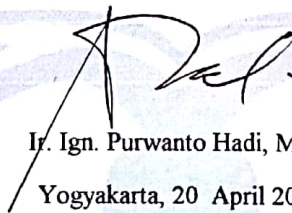 Ir. Ign. Purwanto Hadi, M
Yogyakarta, 20 April 20